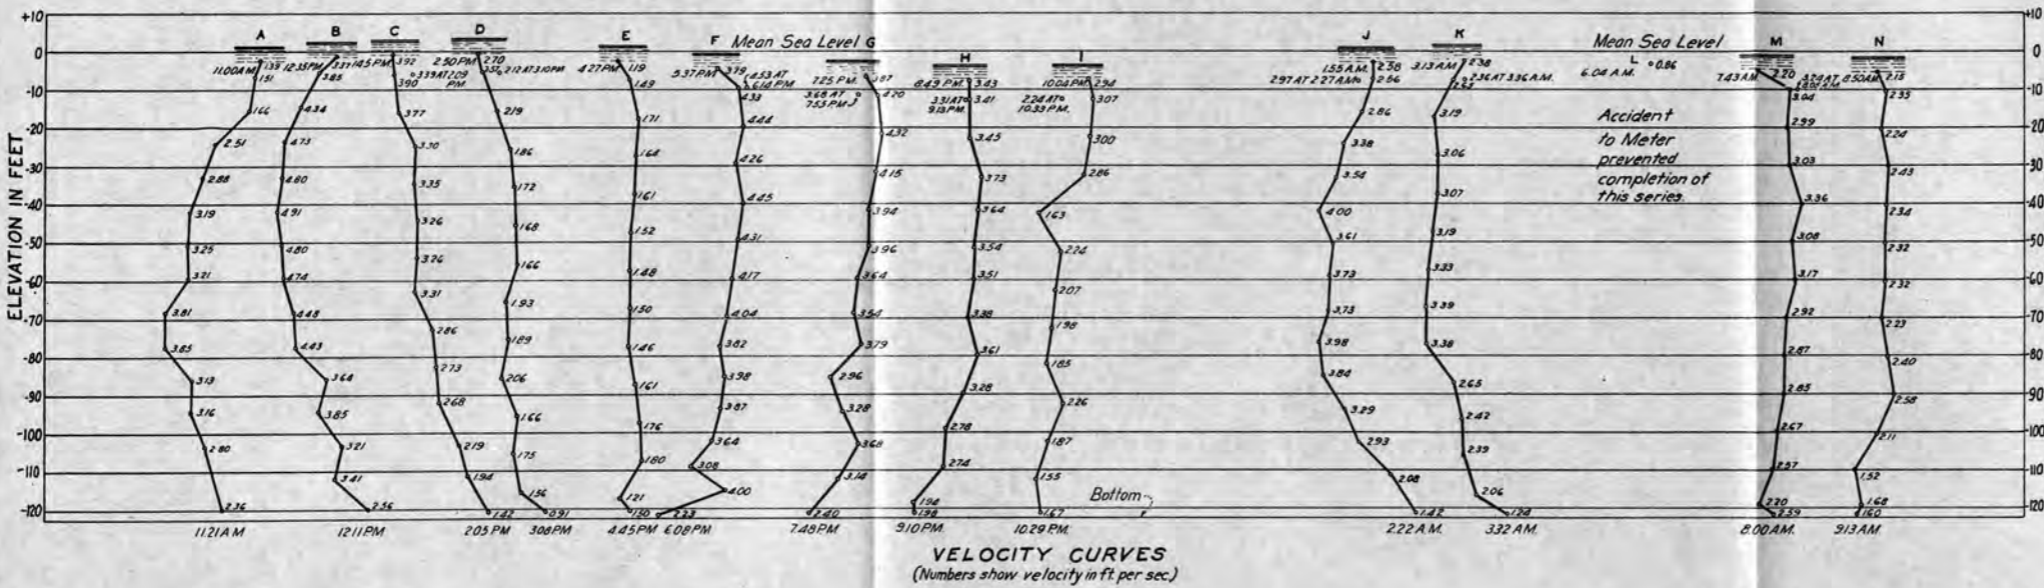 +10
0
-10
-20
-30
-40
-50
-60
-70
-80
-90
-100
-110
-120
ELEVATION IN FEET
A
11.00 A.M.
1.39
1.51
1.66
2.51
2.88
3.19
3.25
3.21
3.81
3.85
3.13
3.16
2.80
2.36
11.21 A.M
B
12.35 P.M.
3.37
3.85
4.34
4.73
4.80
4.91
4.80
4.74
4.48
4.43
3.64
3.85
3.21
3.41
2.56
12.11 P.M.
C
1.45 P.M.
3.92
3.90
3.39 AT 2.09 P.M.
3.77
3.30
3.35
3.26
3.26
3.31
2.86
2.73
2.68
2.19
1.94
1.42
2.05 P.M
D
2.50 P.M.
2.70
2.12 AT 3.10 P.M
2.19
1.86
1.72
1.68
1.66
1.93
1.89
2.06
1.66
1.75
1.56
0.91
3.08 P.M
E
4.27 P.M.
1.19
1.49
1.71
1.64
1.61
1.52
1.48
1.50
1.46
1.61
1.76
1.80
1.21
1.50
4.45 P.M
F
Mean Sea Level
5.37 P.M.
3.79
4.53 AT 6.14 P.M
4.33
4.44
4.26
4.45
4.31
4.17
4.04
3.82
3.98
3.87
3.64
3.08
4.00
2.23
6.08 P.M
G
7.25 P.M.
3.87
3.68 AT 7.55 P.M.
4.20
4.32
4.15
3.94
3.96
3.64
3.54
3.79
2.96
3.28
3.68
3.14
2.40
7.48 P.M
H
8.49 P.M.
3.43
3.31 AT 9.13 P.M.
3.41
3.45
3.73
3.64
3.54
3.51
3.38
3.61
3.28
2.78
2.74
1.94
1.98
9.10 P.M.
I
10.04 P.M.
2.94
2.24 AT 10.33 P.M.
3.07
3.00
2.86
1.63
2.24
2.07
1.98
1.85
2.26
1.87
1.55
1.67
10.29 P.M.
Bottom
J
1.55 A.M.
2.58
2.97 AT 2.27 A.M.
2.56
2.86
3.38
3.54
4.00
3.61
3.73
3.73
3.98
3.84
3.29
2.93
2.08
1.42
2.22 A.M.
K
3.13 A.M.
2.38
2.36 AT 3.36 A.M.
2.63
3.19
3.06
3.07
3.19
3.33
3.39
3.38
2.65
2.42
2.39
2.06
1.24
3.32 A.M.
Mean Sea Level
L
6.04 A.M.
0.86
Accident
to Meter
prevented
completion of
this series.
M
7.43 A.M.
2.20
3.04
2.99
3.03
3.36
3.08
3.17
2.92
2.87
2.85
2.67
2.57
2.20
2.59
8.00 A.M.
N
8.50 A.M.
2.15
2.35
2.24
2.43
2.34
2.32
2.32
2.23
2.40
2.58
2.11
1.52
1.68
1.60
9.13 A.M.
+10
0
-10
-20
-30
-40
-50
-60
-70
-80
-90
-100
-110
-120
VELOCITY CURVES
(Numbers show velocity in ft. per sec.)